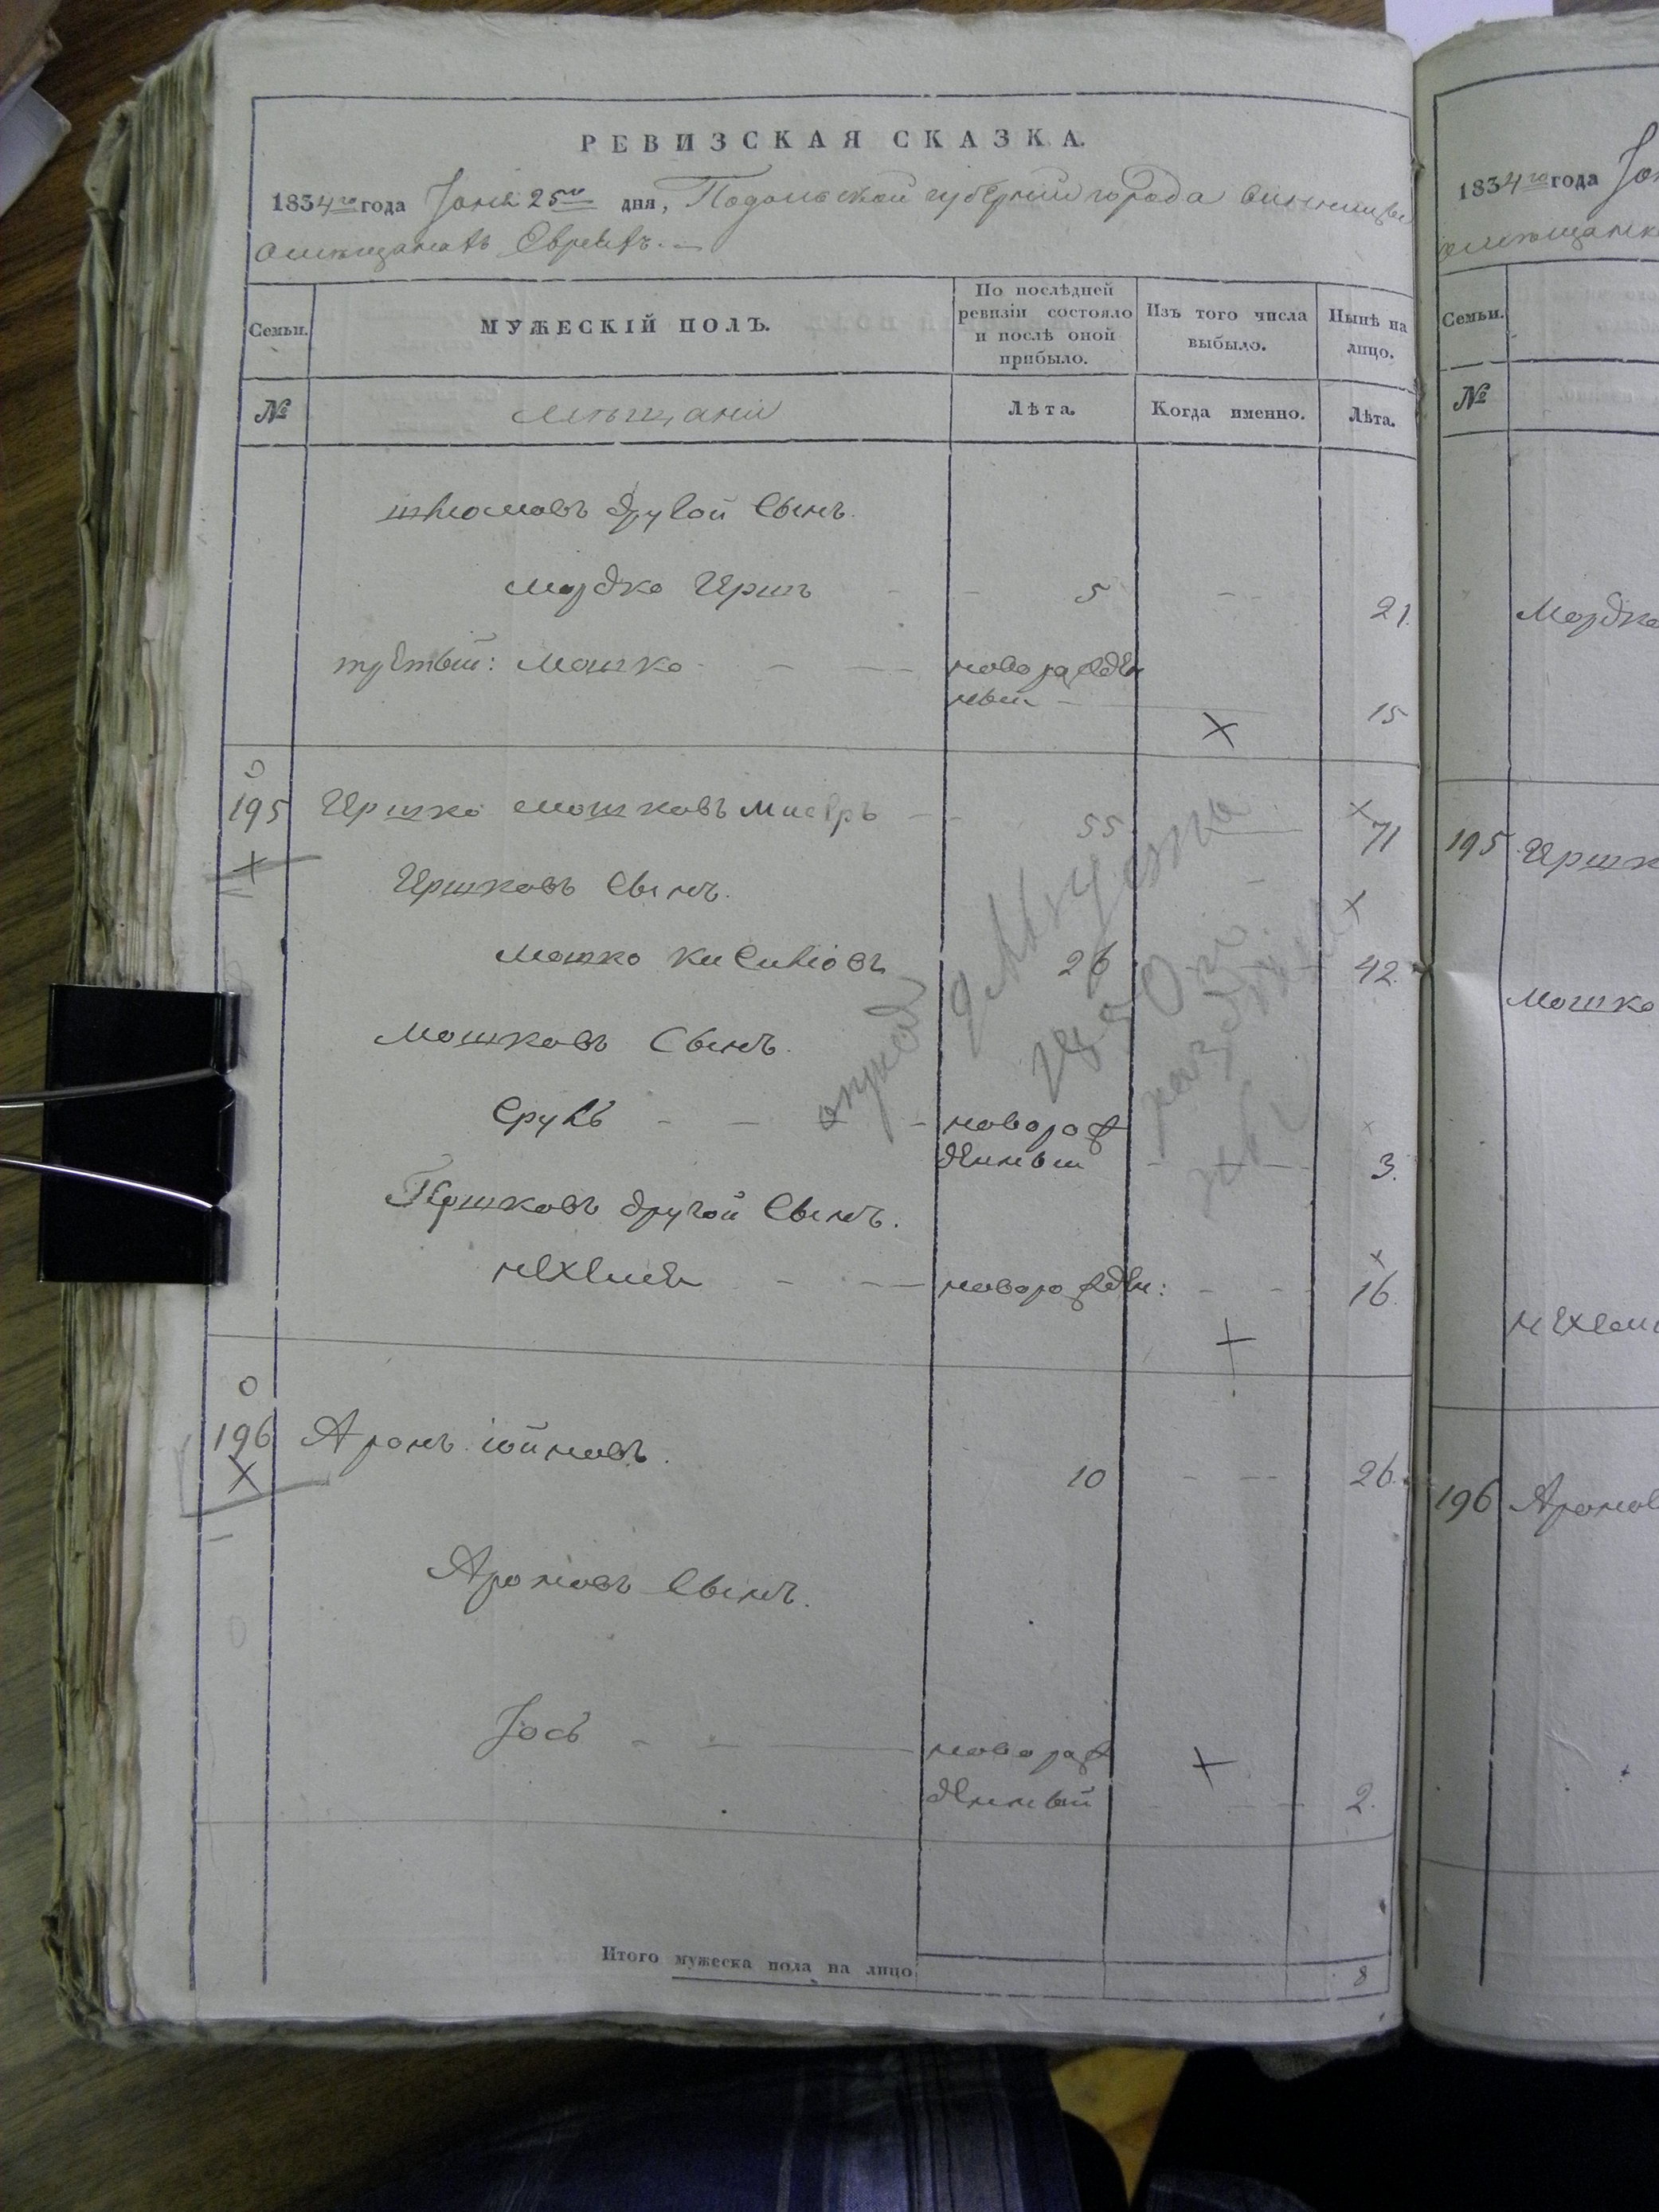 РЕВИЗСКАЯ СКАЗКА.
1834го года Іюня 25го дня, Подольской губерніи города Винницы
о мѣщанахъ Евреяхъ.
Семьи.
МУЖЕСКІЙ ПОЛЪ.
По послѣдней ревизіи состояло и послѣ оной прибыло.
Изъ того числа выбыло.
Нынѣ на лицо.
№
мѣщани
Лѣта.
Когда именно.
Лѣта.
шлюмовъ другой Сынъ.
Мордко Иршъ 5 21.
третый: Мошко новорожден
ный 15
195 Иршко Мошковъ 55 71
Иршковъ Сынъ.
Мошко 26 42.
Мошковъ Сынъ.
Сруль новорож
денный 3.
Гершковъ другой Сынъ.
новорожден: 16.
196 Аронъ Іойновъ. 10 26.
Ароновъ Сынъ.
Іось новорож
денный 2.
Итого мужеска пола на лицо 8
1834го года
Семьи.
№
Мордко
195 Иршк
Мошко
196